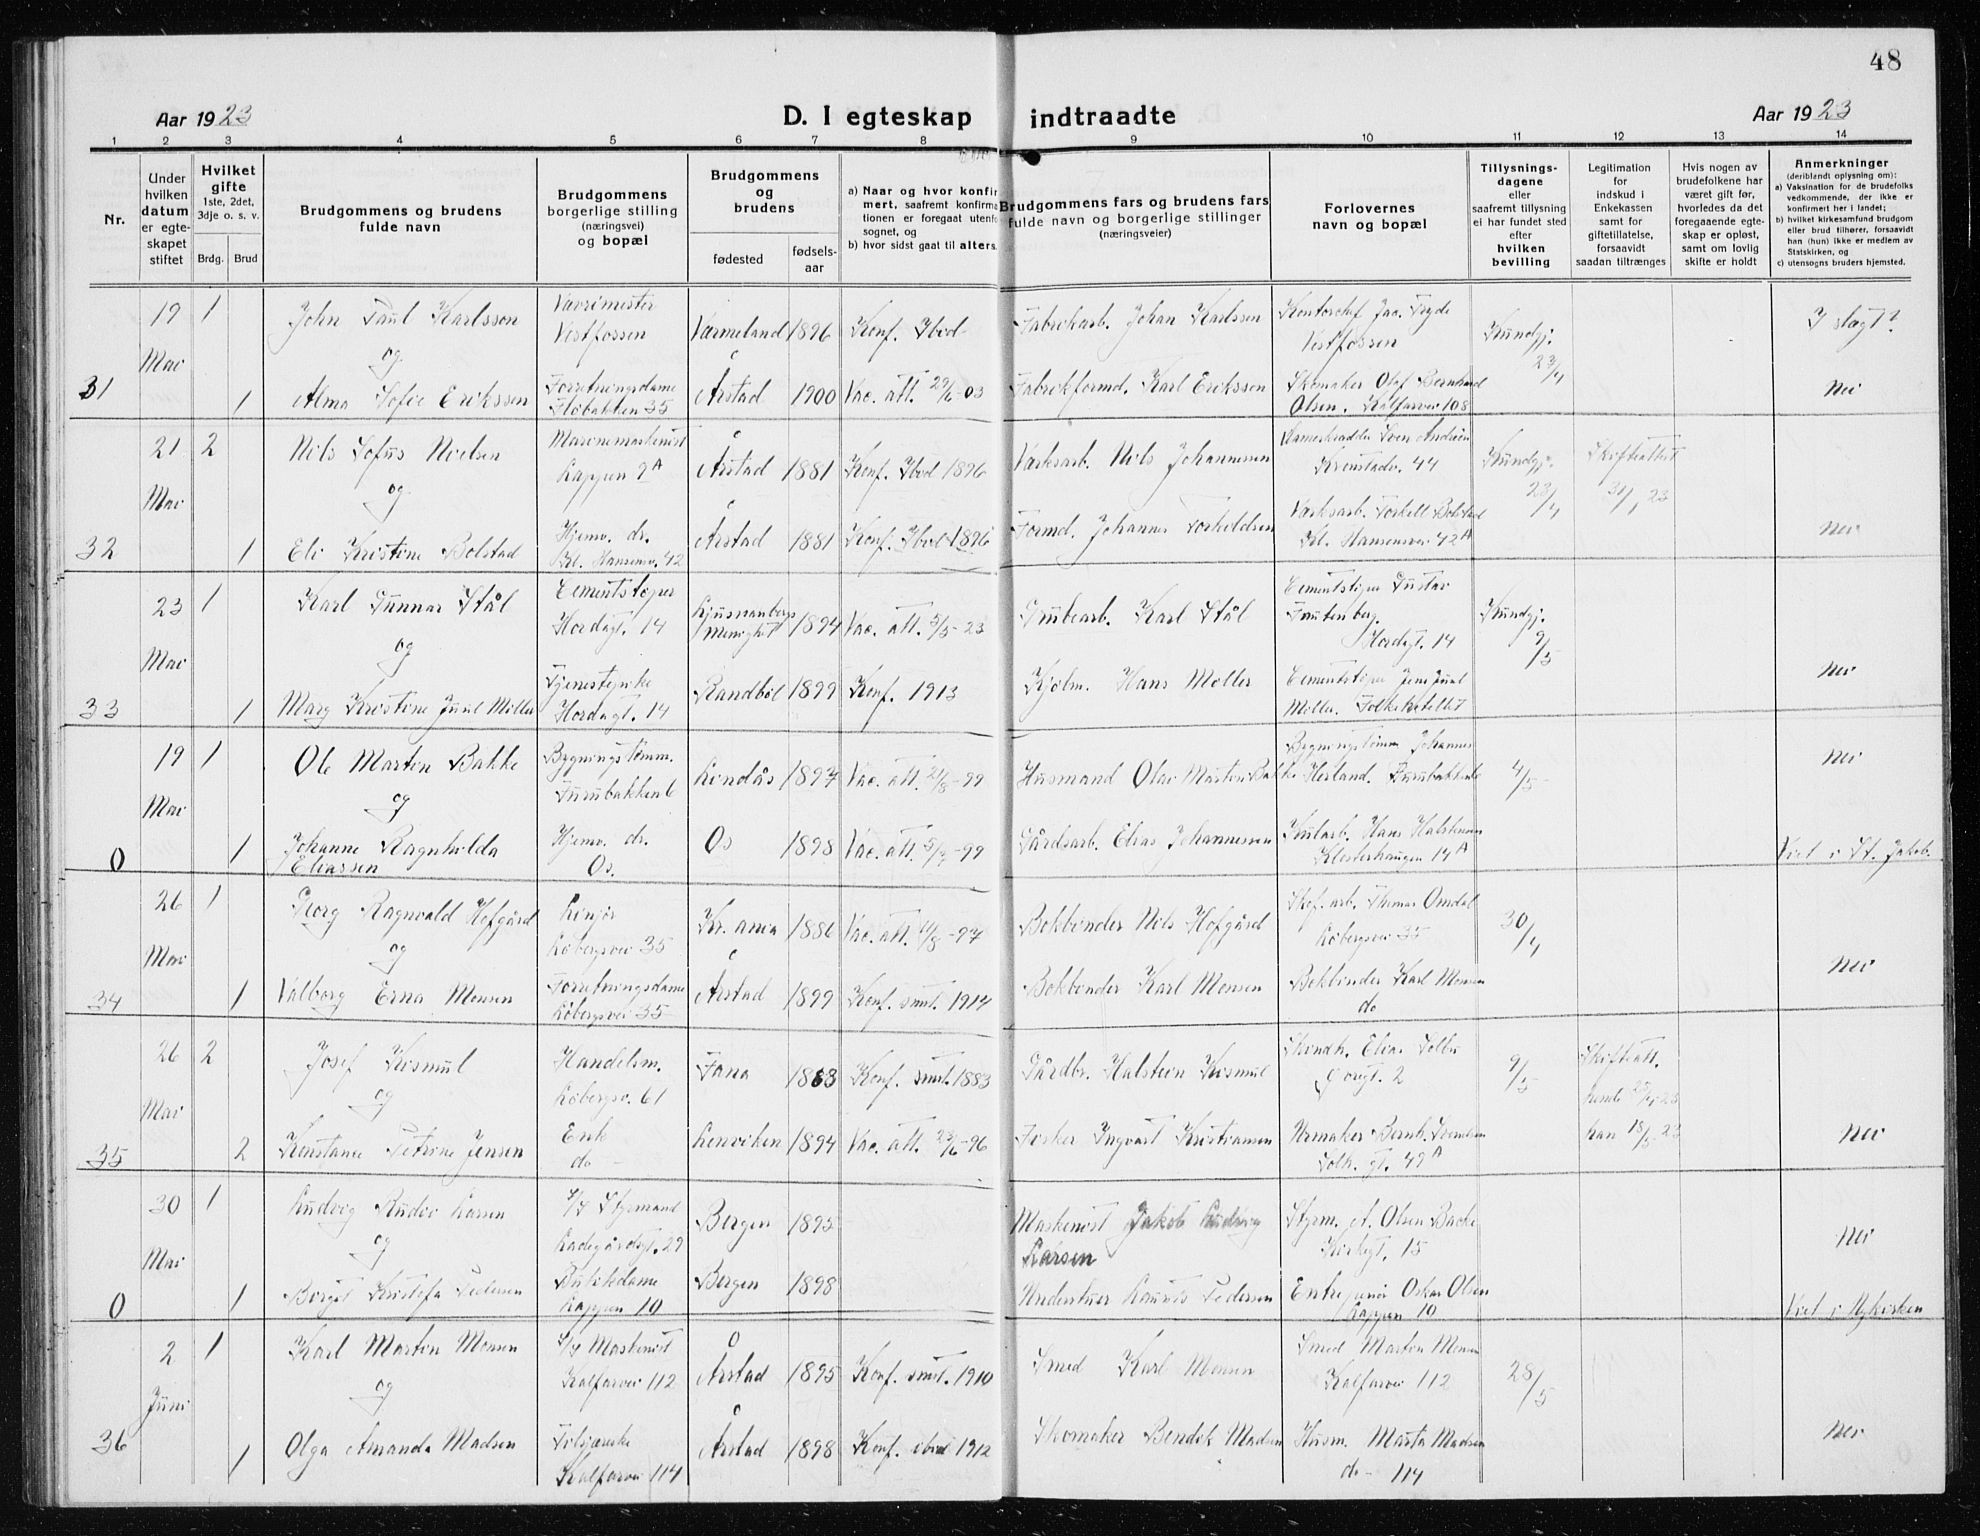 48
Aar 1923
D. I egteskap indtraadte
Aar 1923
1 2 3 4 5 6 7 8 9 10 11 12 13 14
Nr.
Under hvilken datum er egteskapet stiftet
Hvilket gifte 1ste, 2det, 3dje o. s. v.
Brdg. Brud
Brudgommens og brudens fulde navn
Brudgommens borgerlige stilling (næringsvei) og bopæl
Brudgommens og brudens
fødested
fødsels-aar
a) Naar og hvor konfirmert, saafremt konfirmationen er foregaat utenfo sognet, og
b) hvor sidst gaat til alters.
Brudgommens fars og brudens fars fulde navn og borgerlige stillinger (næringsveier)
Forlovernes navn og bopæl
Tillysnings-dagene eller saafremt tillysning ei har fundet sted efter hvilken bevilling
Legitimation for indskud i Enkekassen samt for giftetillatelse, forsaavidt saadan tiltrænges
Hvis nogen av brudefolkene har været gift før, hvorledes da det foregaaende egteskap er opløst, samt om lovlig skifte er holdt
Anmerkninger (deriblandt oplysning om):
a) Vaksination for de brudefolks vedkommende, der ikke er konfirmert her i landet;
b) hvilket kirkesamfund brudgom eller brud tilhører, forsaavidt han (hun) ikke er medlem av Statskirken, og
c) utensogns bruders hjemsted.
31 19 Mai 1 John Paul Karlsson Vestfossen Værmeland 1896 Konf. Ibid Fabrikarb. Johan Karlssen Kontorchef Jac. Tryde Vestfossen Kundgj. 23/4 I slægt?
og
1 Alma Sofie Erikssen Forretningsdame Fløbakken 35 Årstad 1900 Vac. att. 29/6-03 Fabrikformd. Karl Erikssen Skomaker Olaf Bernhard Olsen. Kalfarvei 108 Nei
32 21 Mai 2 Nils Sofus Nielsen Marinemaskinist Kappen 9A Årstad 1881 Konf. Ibid 1896 Værksarb. Nils Johannessen Kronstadv. 44 Kundgj. 23/4 Skifteattest 31/1 23
og
1 Eli Kristine Bolstad Hjemv. dr. Bl. Hansensv. 42 Årstad 1881 Konf. Ibid 1896 Formd. Johannes Torkeldsen Værksarb. Torkell Bolstad Bl. Hansensvei 42A Nei
33 23 Mai 1 Karl Gunnar Stål Cementstøper Hordagt. 14 Menighet 1894 Vac. att. 5/5-23 Grubearb. Karl Stål Cementstøper Gustav Hordagt. 14 Kundgj. 9/5
og
1 Marg Kristine Juul Møller Tjenestepike Hordagt. 14 Randbøl 1899 Konf. 1913 Kjølm. Hans Møller Cementstøper Jens Juul Møller. Folkehotellet Nei
0 19 Mai 1 Ole Martin Bakke Bygningstømm. Furubakken 6 Lindås 1897 Vac. att. 21/8-99 Husmand Olai Martin Bakke Bygningstømm Johannes Herland. Furubakken 4/5 Nei
og
1 Johanne Ragnhilda Eliassen Hjemv. dr. Os. Os 1898 Gårdsarb. Elias Johannessen Kularb. Hans Halstensen Klosterhaugen 14A Viet i St. Jakob.
34 26 Mai 1 Georg Ragnvald Hofgård Løbergsvei 35 Kr.ania 1886 Vac. att. Bokbinder Nils Hofgård Thomas Omdal Løbergsvei 35 30/4
og
1 Valborg Erna Monsen Forretningsdame Løbergsvei 35 Årstad 1899 Konf. smst. 1914 Bokbinder Karl Monsen Bokbinder Karl Monsen do Nei
35 26 Mai 2 Josef Kismul Handelsm. Løbergsv. 61 Fana 1868 Konf. smst. 1883 Gårdbr. Halstein Kismul Elias 2 9/5 Skifteatt.
og
2 Konstanse Petrine Jensen Enk do Lenviken 1894 Vac. att. 23/6-96 Fisker Ingvart Kristiansen Urmaker Bernh. 49A han 18/5-23 Nei
0 30 Mai 1 Ludvig Rudin Larsen Styrmand Ladegårdsgt. 29 Bergen 1895 Maskinist Jakob Ludvig Larsen Styrm. A. Olsen Backe Kirkegt. 15 Nei
og
1 Birgit Kristofa Pedersen Butikdame Kappen 10 Bergen 1898 Underituer Laurits Pedersen Entreprenør Oskar Olsen Kappen 10 Viet i Nykirken
36 2 Juni 1 Karl Martin Monsen Maskinist Kalfarvei 112 Årstad 1895 Konf. smst. 1910 Smed Karl Monsen Smed Martin Monsen Kalfarvei 112 28/5
og
1 Olga Amanda Madsen Kalfarvei 114 Årstad 1898 Konf. ibid 1912 Skomaker Bendik Madsen Husm. Marta Madsen do - 114 Nei